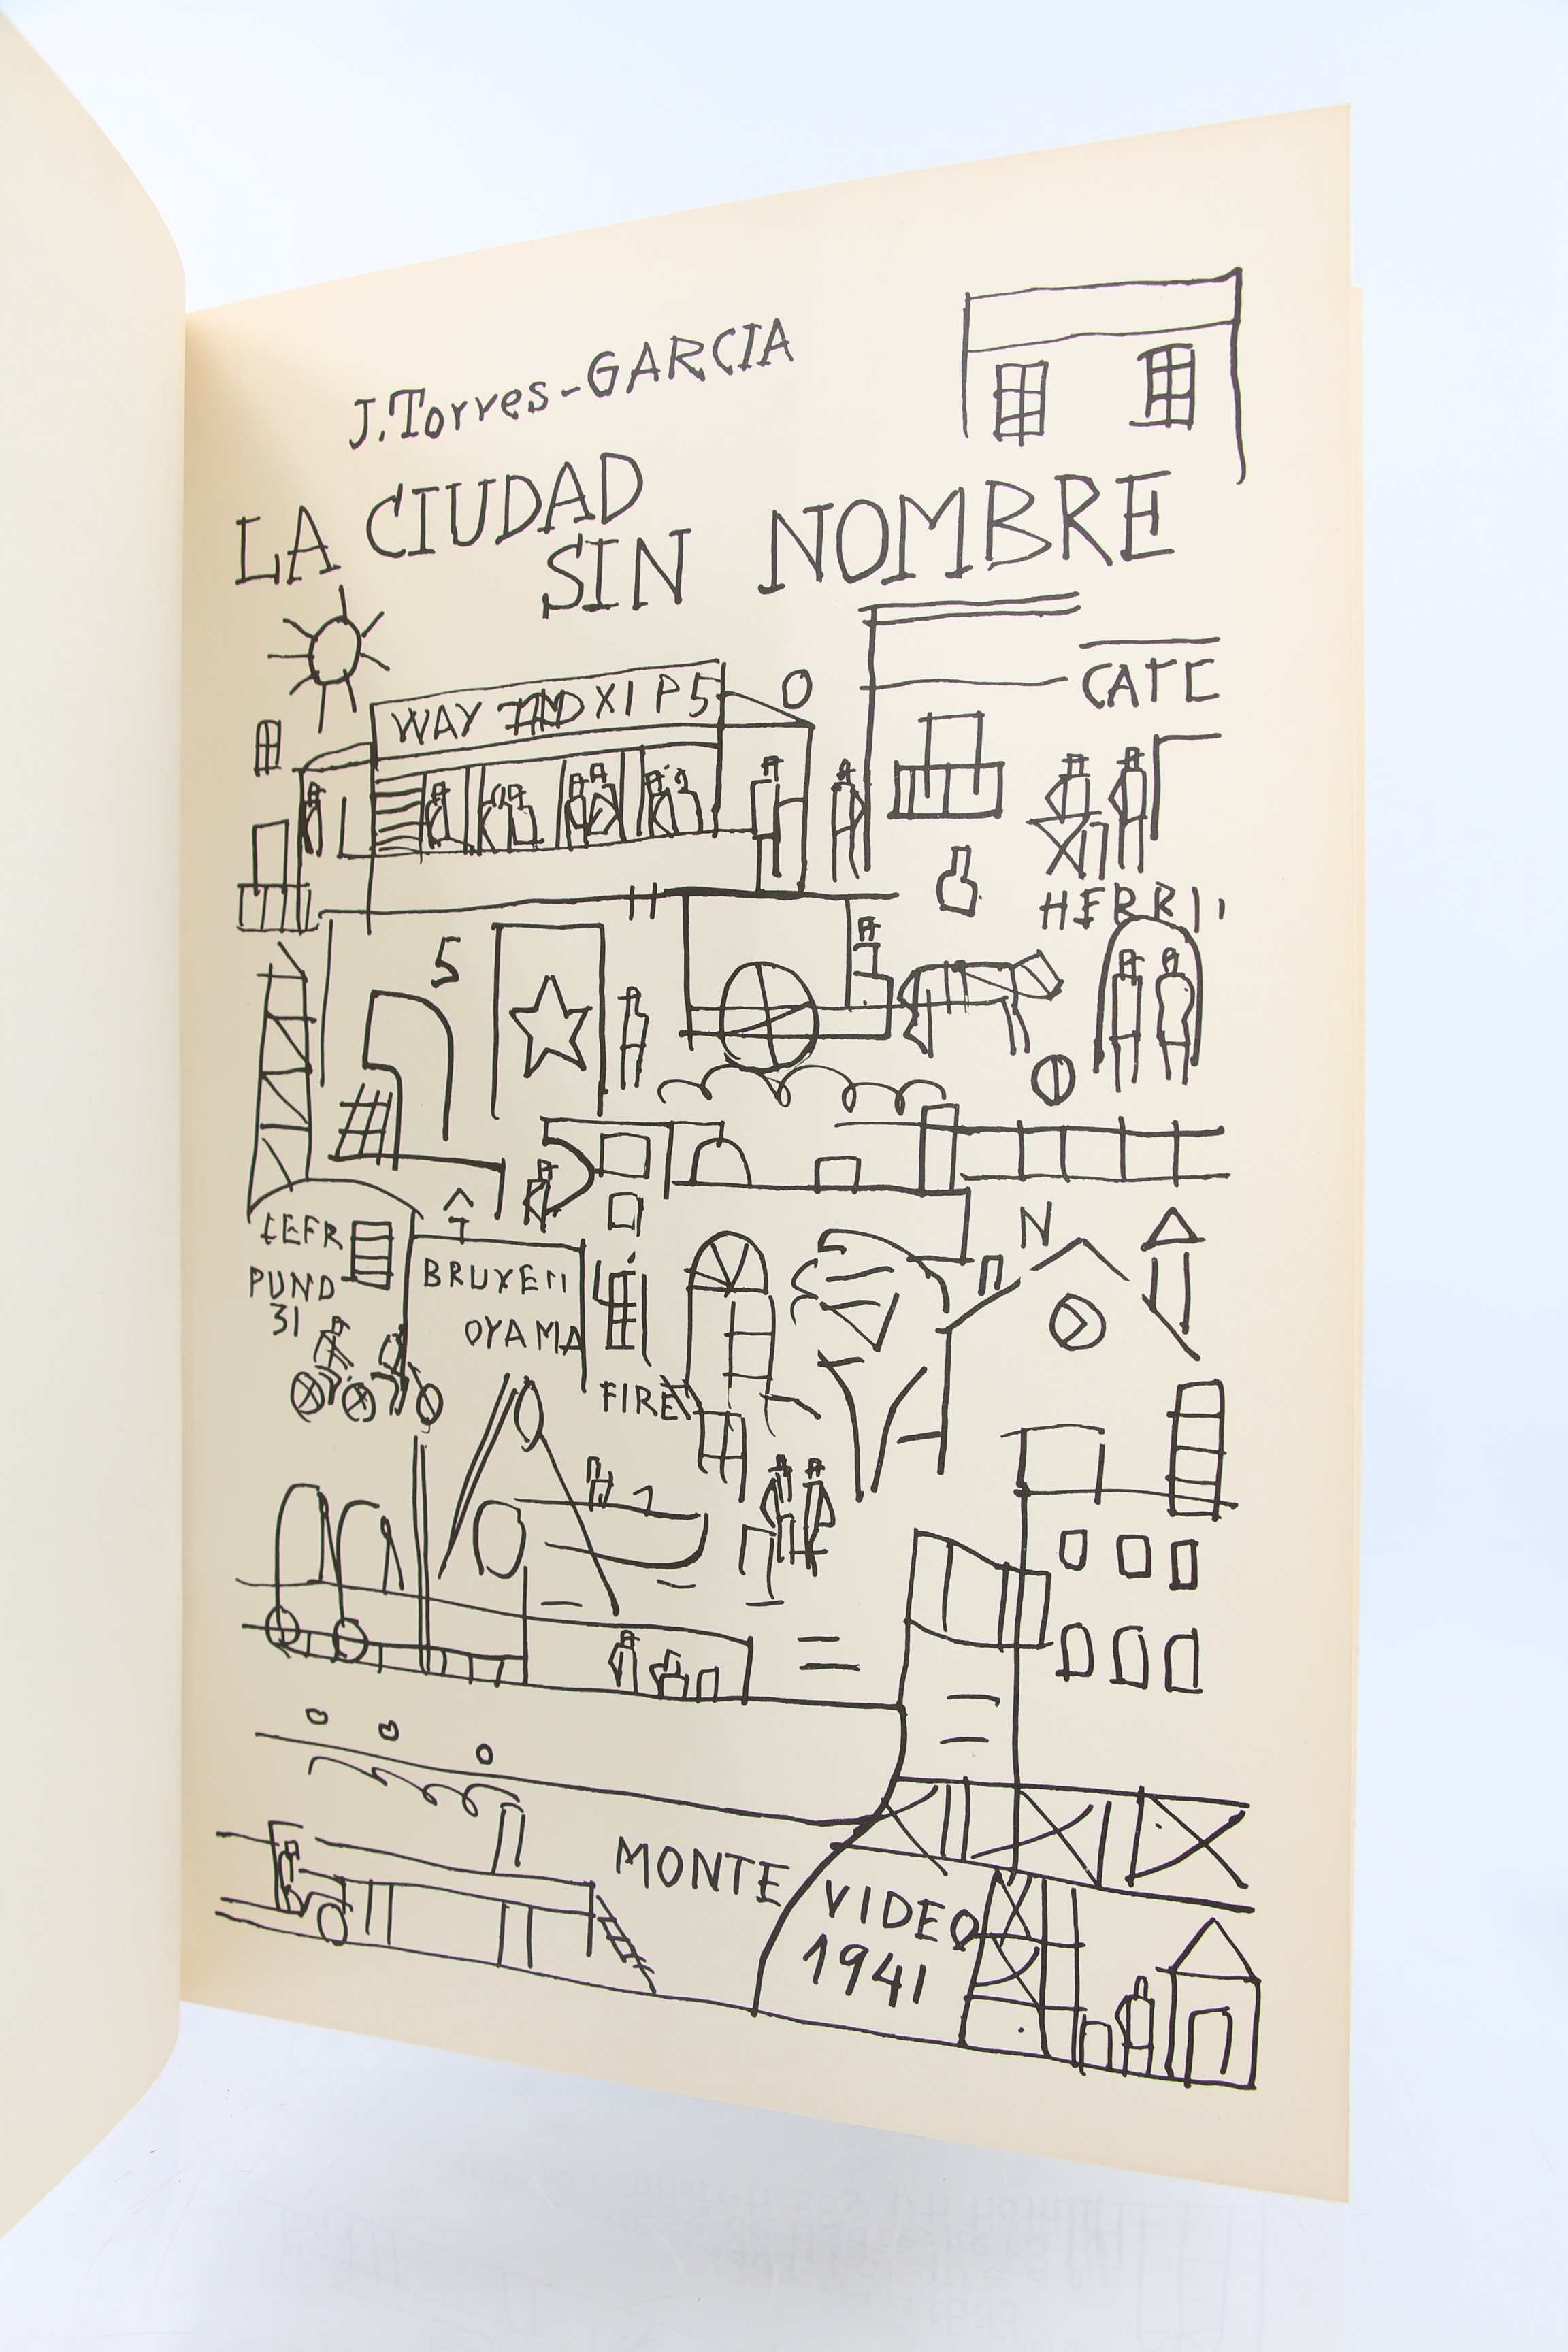 J. Torres-GARCIA
LA CIUDAD
SIN NOMBRE
WAY XI P 5
CAFE
5
N
PUND
31
BRUXEII
OYAMA
FIRE
MONTE
VIDEO
1941